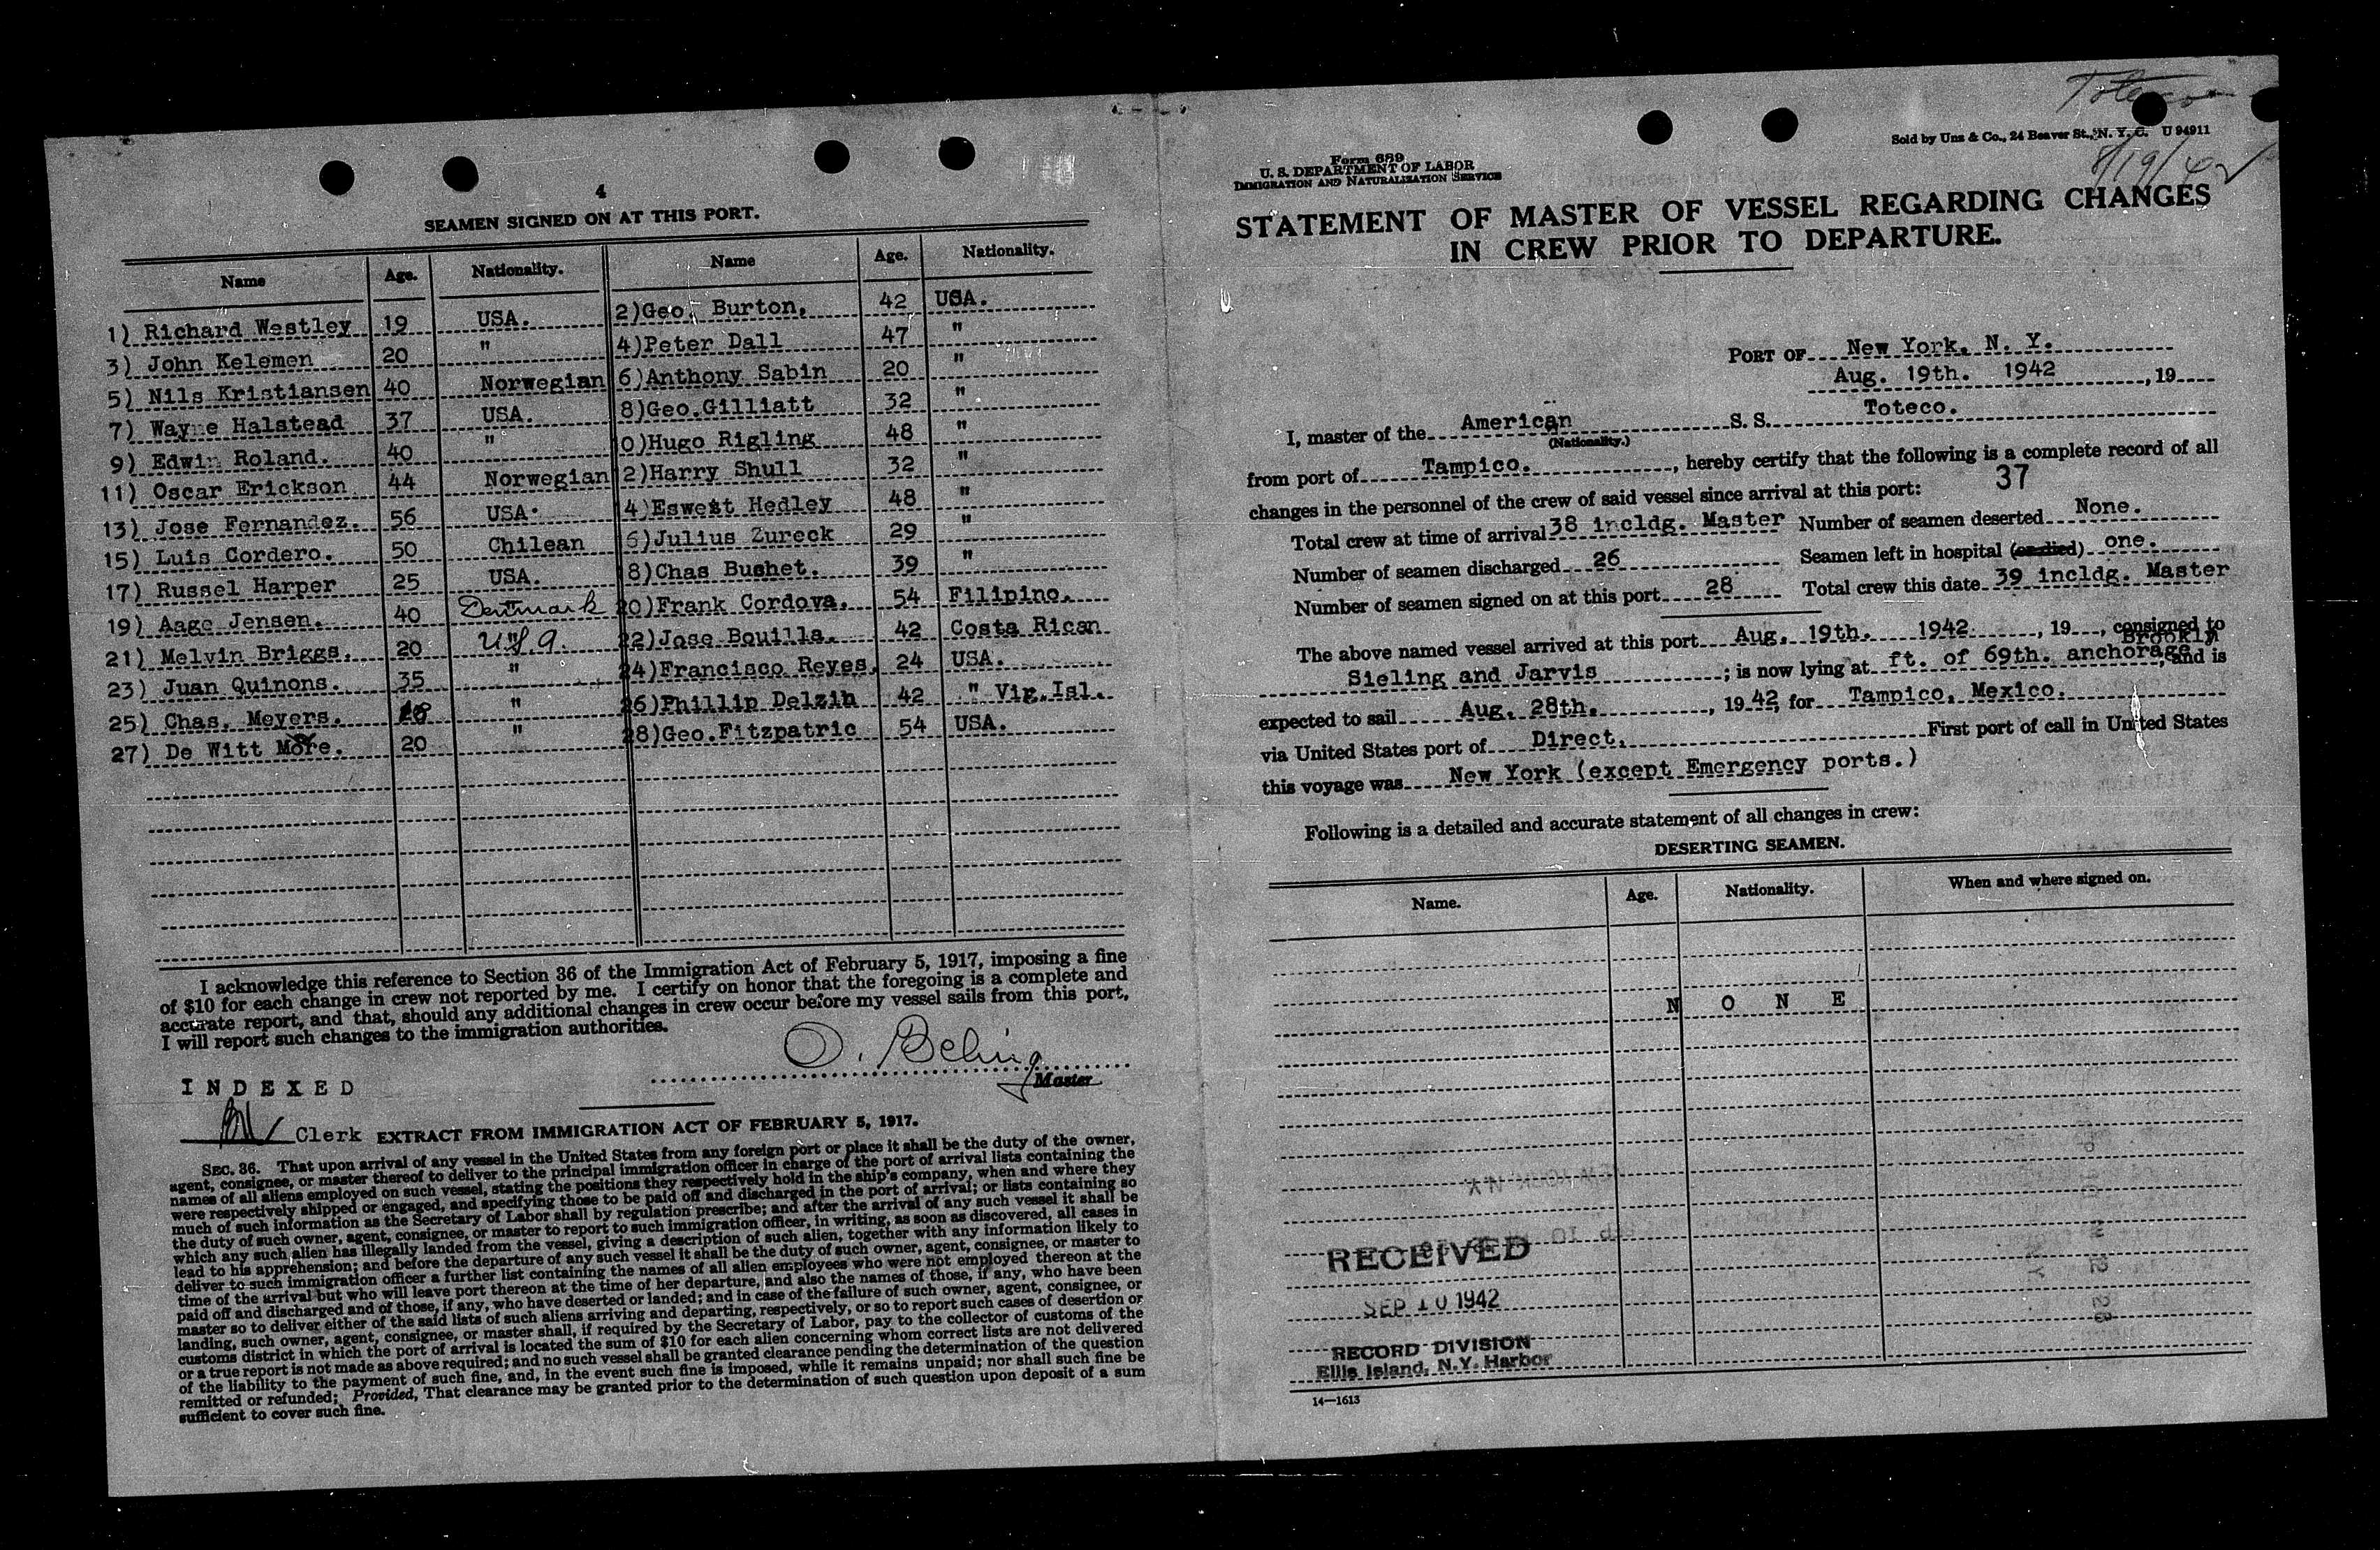 4
SEAMEN SIGNED ON AT THIS PORT.
Name Age. Nationality. Name Age. Nationality.
1) Richard Westley 19 USA. 2)Geo. Burton, 42 USA.
3) John Kelemen 20 " 4)Peter Dall 47 "
5) Nils Kristiansen 40 Norwegian 6)Anthony Sabin 20 "
7) Wayne Halstead 37 USA. 8)Geo.Gilliatt 32 "
9) Edwin Roland. 40 " 0)Hugo Rigling 48 "
11) Oscar Erickson 44 Norwegian 2)Harry Shull 32 "
13) Jose Fernandez. 56 USA. 4)Eswett Hedley 48 "
15) Luis Cordero. 50 Chilean 6)Julius Zureck 29 "
17) Russel Harper 25 USA. 8)Chas Bushet. 39 "
19) Aage Jensen. 40 Denmark 20)Frank Cordova. 54 Filipino.
21) Melvin Briggs. 20 U.S.A. 22)Jose Bouilla. 42 Costa Rican
23) Juan Quinons. 35 " 24)Francisco Reyes. 24 USA.
25) Chas. Meyers. 18 " 26)Phillip Delzin 42 " Vig.Isl.
27) De Witt More. 20 " 28)Geo.Fitzpatric 54 USA.
I acknowledge this reference to Section 36 of the Immigration Act of February 5, 1917, imposing a fine
of $10 for each change in crew not reported by me. I certify on honor that the foregoing is a complete and
accurate report, and that, should any additional changes in crew occur before my vessel sails from this port,
I will report such changes to the immigration authorities.
O. Beling
Master
INDEXED
Clerk EXTRACT FROM IMMIGRATION ACT OF FEBRUARY 5, 1917.
SEC. 36. That upon arrival of any vessel in the United States from any foreign port or place it shall be the duty of the owner,
agent, consignee, or master thereof to deliver to the principal immigration officer in charge of the port of arrival lists containing the
names of all aliens employed on such vessel, stating the positions they respectively hold in the ship's company, when and where they
were respectively shipped or engaged, and specifying those to be paid off and discharged in the port of arrival; or lists containing so
much of such information as the Secretary of Labor shall by regulation prescribe; and after the arrival of any such vessel it shall be
the duty of such owner, agent, consignee, or master to report to such immigration officer, in writing, as soon as discovered, all cases in
which any such alien has illegally landed from the vessel, giving a description of such alien, together with any information likely to
lead to his apprehension; and before the departure of any such vessel it shall be the duty of such owner, agent, consignee, or master to
deliver to such immigration officer a further list containing the names of all alien employees who were not employed thereon at the
time of the arrival but who will leave port thereon at the time of her departure, and also the names of those, if any, who have been
paid off and discharged and of those, if any, who have deserted or landed; and in case of the failure of such owner, agent, consignee, or
master so to deliver either of the said lists of such aliens arriving and departing, respectively, or so to report such cases of desertion or
landing, such owner, agent, consignee, or master shall, if required by the Secretary of Labor, pay to the collector of customs of the
customs district in which the port of arrival is located the sum of $10 for each alien concerning whom correct lists are not delivered
or a true report is not made as above required; and no such vessel shall be granted clearance pending the determination of the question
of the liability to the payment of such fine, and, in the event such fine is imposed, while it remains unpaid; nor shall such fine be
remitted or refunded; Provided, That clearance may be granted prior to the determination of such question upon deposit of a sum
sufficient to cover such fine.
Toteco
Sold by Unz & Co., 24 Beaver St., N. Y. C. U 94911
8/19/42
Form 689
U. S. DEPARTMENT OF LABOR
IMMIGRATION AND NATURALIZATION SERVICE
STATEMENT OF MASTER OF VESSEL REGARDING CHANGES
IN CREW PRIOR TO DEPARTURE.
PORT OF New York, N. Y.
Aug. 19th. 1942, 19
I, master of the American S. S. Toteco.
(Nationality.)
from port of Tampico., hereby certify that the following is a complete record of all
changes in the personnel of the crew of said vessel since arrival at this port: 37
Total crew at time of arrival 38 incldg. Master Number of seamen deserted None.
Number of seamen discharged 26 Seamen left in hospital (or died) one.
Number of seamen signed on at this port 28 Total crew this date 39 incldg. Master
The above named vessel arrived at this port Aug. 19th. 1942, 19, consigned to
Sieling and Jarvis; is now lying at ft. of 69th. anchorage Brookly, and is
expected to sail Aug. 28th., 19 42 for Tampico, Mexico.
via United States port of Direct. First port of call in United States
this voyage was New York (except Emergency ports.)
Following is a detailed and accurate statement of all changes in crew:
DESERTING SEAMEN.
Name. Age. Nationality. When and where signed on.
N O N E
RECEIVED
SEP 10 1942
RECORD DIVISION
Ellis Island, N.Y. Harbor
14—1613